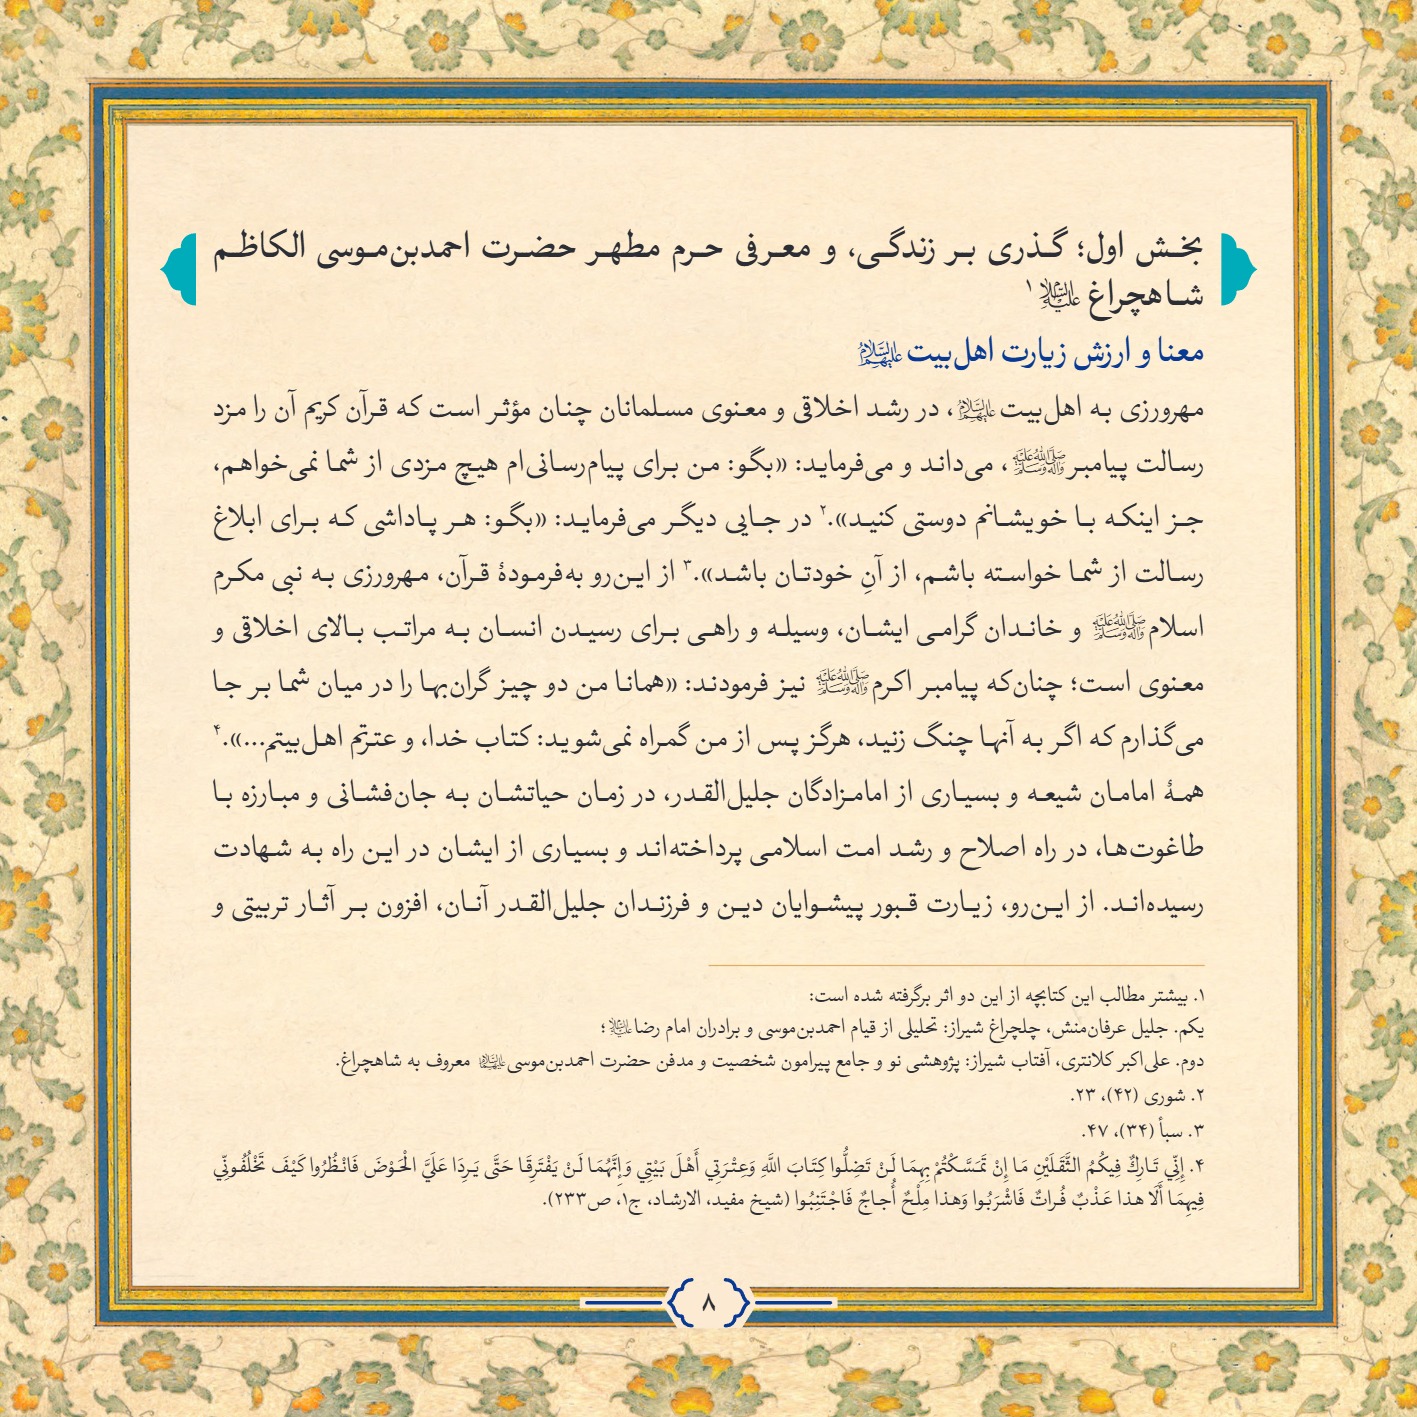 بخش اول؛ گذری بر زندگی، و معرفی حرم مطهر حضرت احمدبن‌موسی الکاظم
شاهچراغ علیه‌السلام ۱
معنا و ارزش زیارت اهل‌بیت علیهم‌السلام
مهرورزی به اهل‌بیت علیهم‌السلام، در رشد اخلاقی و معنوی مسلمانان چنان مؤثر است که قرآن کریم آن را مزد
رسالت پیامبر صلی‌الله‌علیه‌وآله‌وسلم، می‌داند و می‌فرماید: «بگو: من برای پیام‌رسانی‌ام هیچ مزدی از شما نمی‌خواهم،
جز اینکه با خویشانم دوستی کنید».۲ در جایی دیگر می‌فرماید: «بگو: هر پاداشی که برای ابلاغ
رسالت از شما خواسته باشم، از آنِ خودتان باشد».۳ از این‌رو به‌فرمودهٔ قرآن، مهرورزی به نبی مکرم
اسلام صلی‌الله‌علیه‌وآله‌وسلم و خاندان گرامی ایشان، وسیله و راهی برای رسیدن انسان به مراتب بالای اخلاقی و
معنوی است؛ چنان‌که پیامبر اکرم صلی‌الله‌علیه‌وآله‌وسلم نیز فرمودند: «همانا من دو چیز گران‌بها را در میان شما بر جا
می‌گذارم که اگر به آنها چنگ زنید، هرگز پس از من گمراه نمی‌شوید: کتاب خدا، و عترتم اهل‌بیتم...».۴
همهٔ امامان شیعه و بسیاری از امامزادگان جلیل‌القدر، در زمان حیاتشان به جان‌فشانی و مبارزه با
طاغوت‌ها، در راه اصلاح و رشد امت اسلامی پرداخته‌اند و بسیاری از ایشان در این راه به شهادت
رسیده‌اند. از این‌رو، زیارت قبور پیشوایان دین و فرزندان جلیل‌القدر آنان، افزون بر آثار تربیتی و
۱. بیشتر مطالب این کتابچه از این دو اثر برگرفته شده است:
یکم. جلیل عرفان‌منش، چلچراغ شیراز: تحلیلی از قیام احمدبن‌موسی و برادران امام رضا علیه‌السلام؛
دوم. علی‌اکبر کلانتری، آفتاب شیراز: پژوهشی نو و جامع پیرامون شخصیت و مدفن حضرت احمدبن‌موسی علیهما‌السلام معروف به شاهچراغ.
۲. شوری (۴۲)، ۲۳.
۳. سبأ (۳۴)، ۴۷.
۴. إِنِّي تَارِكٌ فِيكُمُ الثَّقَلَيْنِ مَا إِنْ تَمَسَّكْتُمْ بِهِمَا لَنْ تَضِلُّوا كِتَابَ اللَّهِ وَعِتْرَتِي أَهْلَ بَيْتِي وَإِنَّهُمَا لَنْ يَفْتَرِقَا حَتَّى يَرِدَا عَلَيَّ الْحَوْضَ فَانْظُرُوا كَيْفَ تَخْلُفُونِّي
فِيهِمَا أَلَا هذا عَذْبٌ فُراتٌ فَاشْرَبُوا وَهذا مِلْحٌ أُجاجٌ فَاجْتَنِبُوا (شیخ مفید، الارشاد، ج۱، ص۲۳۳).
۸